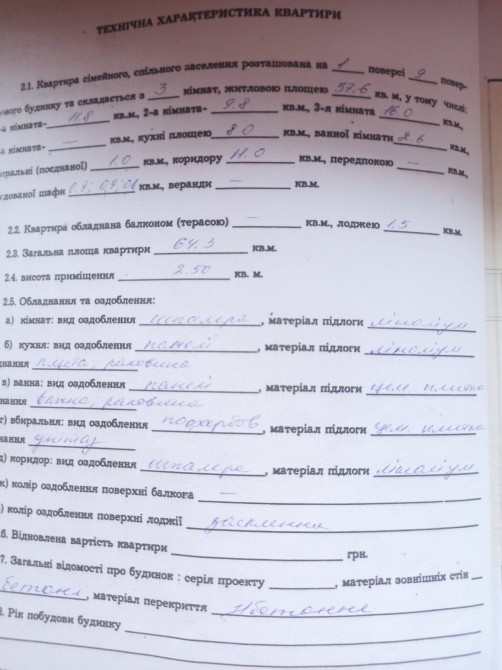 ТЕХНІЧНА ХАРАКТЕРИСТИКА КВАРТИРИ
2.1. Квартира сімейного, спільного заселення розташована на 1 поверсі 9 повер-
ового будинку та складається з 3 кімнат, житловою площею 37.6 кв. м, у тому числі:
-а кімната- 11.8 кв.м, 2-а кімната- 9.8 кв.м, 3-я кімната 16.0 кв.м,
-а кімната- — кв.м, кухні площею 8.0 кв.м, ванної кімнати 2.6 кв.м,
иральні (поєднаної) 1.0 кв.м, коридору 11.0 кв.м, передпокою — кв.м,
удованої шафи кв.м, веранди — кв.м.
2.2. Квартира обладнана балконом (терасою) — кв.м., лоджею 1.5 кв.м.
2.3. Загальна площа квартири 64.3 кв.м.
2.4. висота приміщення 2.50 кв. м.
2.5. Обладнання та оздоблення:
а) кімнат: вид оздоблення шпалера, матеріал підлоги ліноліум
б) кухня: вид оздоблення панелі, матеріал підлоги ліноліум
днання плита, раковина
в) ванна: вид оздоблення панелі, матеріал підлоги цем. плитка
нання ванна, раковина
г) вбиральня: вид оздоблення, матеріал підлоги цем. плитка
нання унітаз
д) коридор: вид оздоблення шпалера, матеріал підлоги ліноліум
к) колір оздоблення поверхні балкога —
) колір оздоблення поверхні лоджії засклення
6. Відновлена вартість квартири грн.
7. Загальні відомості про будинок : серія проекту, матеріал зовнішніх стін
бетонні, матеріал перекриття бетонне
. Рік побудови будинку